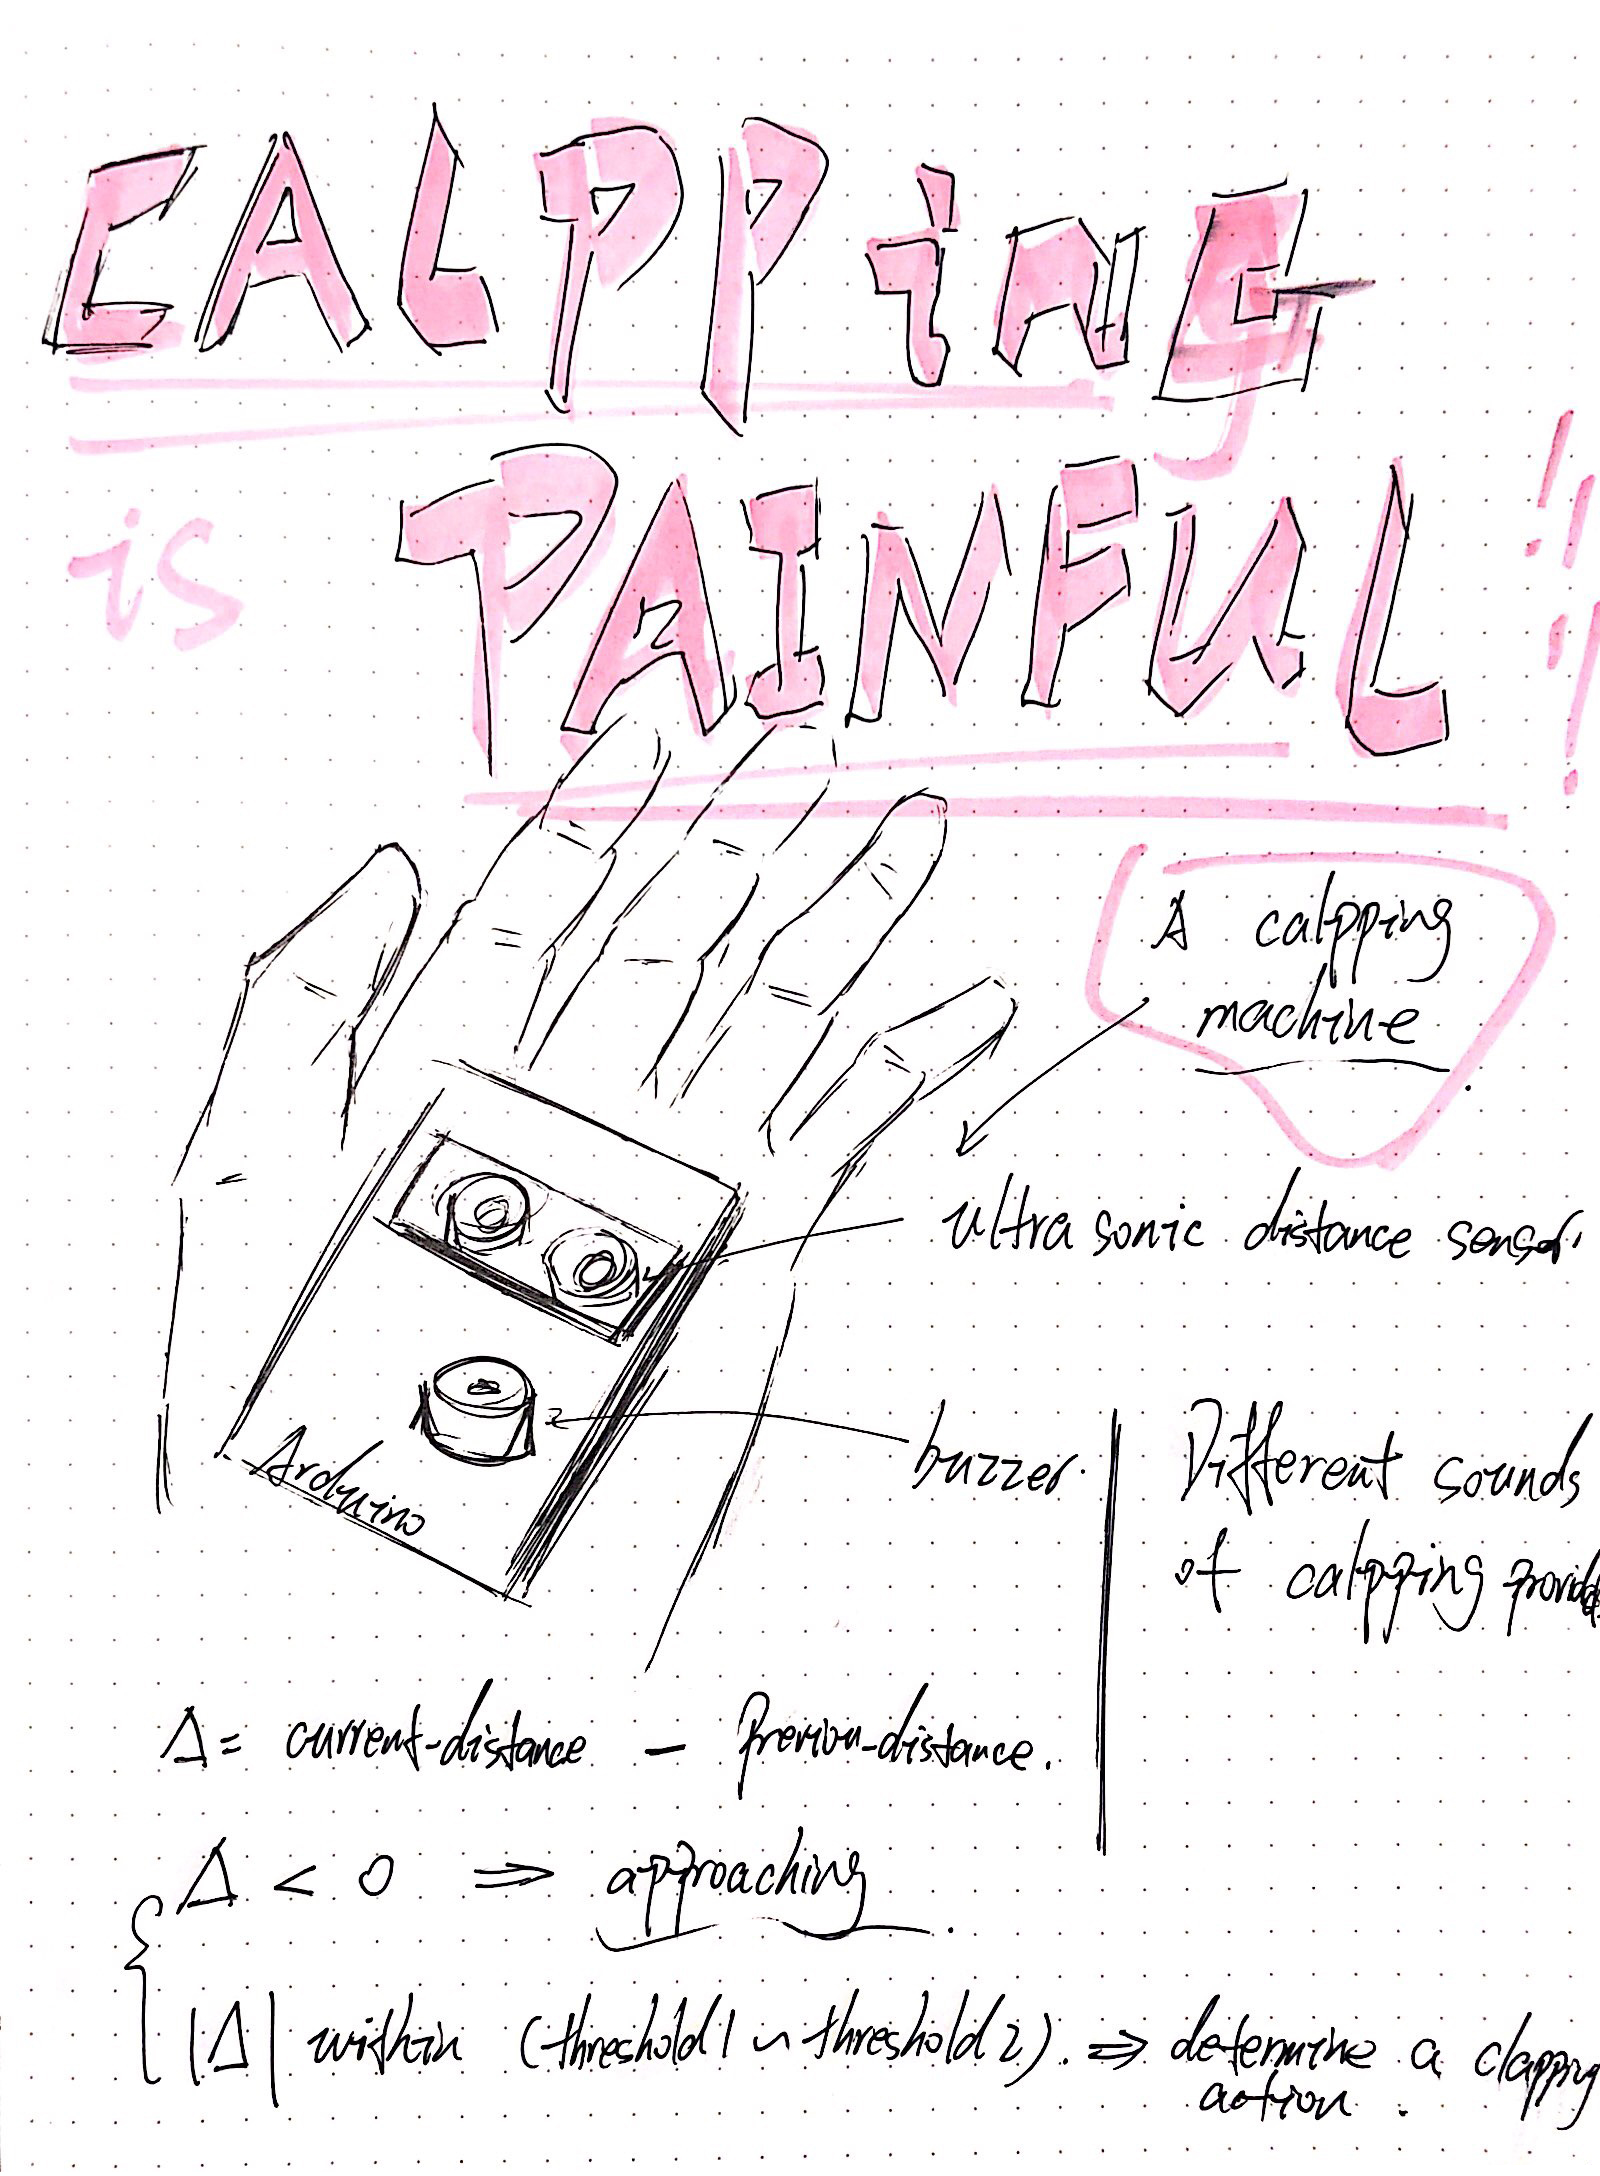 CALPPing
is PAINFUL !!!
A calpping
machine
ultra sonic distance sensor.
buzzer.
Different sounds
of calpping provided
Arduino
Δ = current-distance — Previou-distance.
Δ < 0 ⇒ approaching.
|Δ| within (threshold1 ~ threshold2). ⇒ determine a clapping
action.